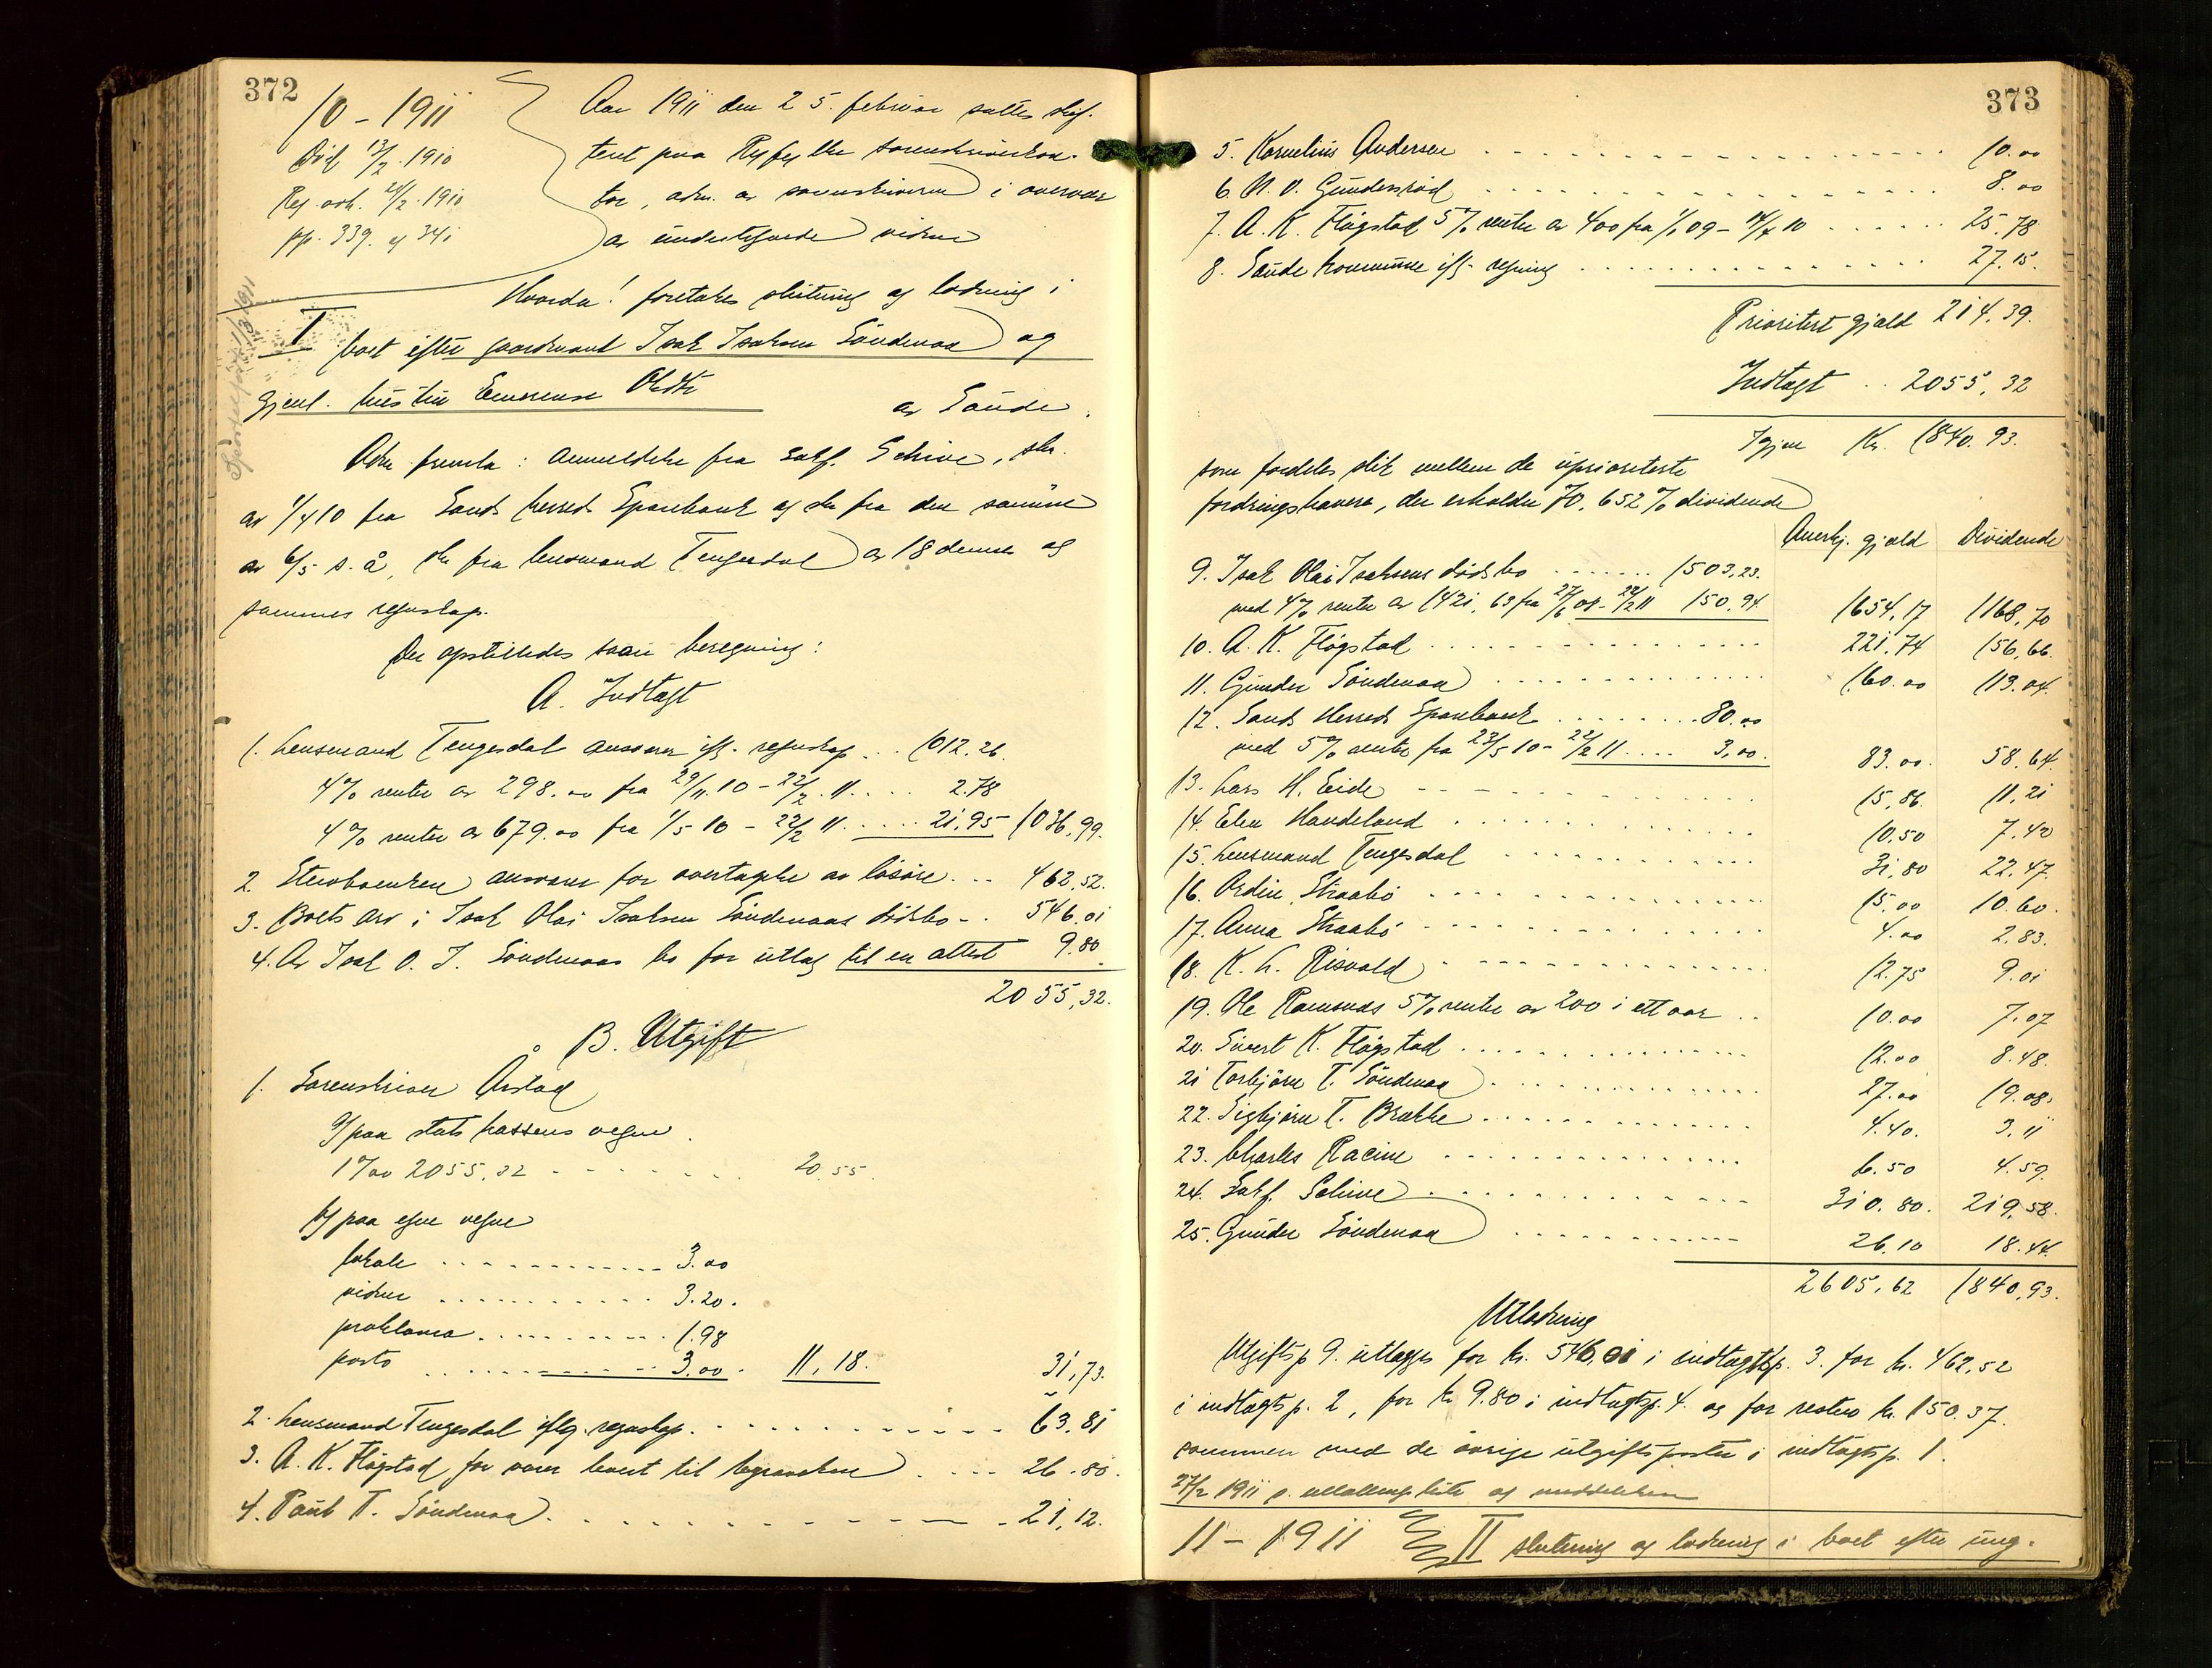 372
10 - 1911
Död 13/2. 1910
Reg. avh. 24/2. 1910
pp. 339. og 341
Aar 1911 den 25. februar sattes skif-
teret paa Ryfylke sorenskriverkon-
tor, adm. av sorenskriveren i overvær
av undertegnede vidner
Hvorda! foretokes slutning og lodning i
I boet efter gaardmand Isak Isaksen Söndenaa og
gjenl. hustru Emerense Oldtr av Saude.
Adm. fremla: anmeldelse fra sakf. Schive, skr.
av 1/4 10 fra Sands herreds Sparebank og skr fra den samme
av 6/5 s. å, skr fra lensmand Tengesdal av 18 dennes og
sammes regnskap.
Der opstilledes saan beregning:
A. Indtægt
1. Lensmand Tengesdal ansvarer ifl. regnskap .. 1012.26
4% renter av 298.00 fra 29/11.10 - 22/2.11 .... 2.78
4% renter av 679.00 fra 1/5 10 - 22/2 11 ..... 21.95 1036,99.
2. Stervboenken ansvarer for overtagelse av lösöre ... 462,52.
3. Boets arv i Isak Olai Isaksen Söndenaas dödsbo - . 546.01
4. Av Isak O. I. Söndenaas bo for utlæg til en attest 9.80
2055,32.
B. Utgift
1. Sorenskriver Årstad
a/ paa statskassens vegne
1% av 2055,32 - - - - 20.55.
b/ paa egne vegne
lokale ............ 3.00
vidner ............ 3.20.
proklama ............ 1.98
porto ............ 3.00. 11,18. 31,73.
2. Lensmand Tengesdal iflg. regnskap ............ 63.81
3. A. K. Flögstad for varer levert til begravelsen .... 26.80.
4. Paul T. Söndenaa ............ 21,12.
373
5. Kornelius Andersen ............ 10.00
6. N. O. Gundersröd ............ 8.00
7. A. K. Flögstad 5% renter av 400 fra 1/1 09 - 14/4 10 ...... 25.78
8. Saude kommune ifl. regning ............ 27.15.
Prioritert gjæld 214.39.
Indtægt .. 2055,32
Igjen Kr. 1840.93.
som fordeles slik mellem de uprioriterte
fordringshavere, der erholder 70,652% dividende
Anerkj. gjæld Dividende
9. Isak Olai Isaksens dödsbo ....... 1503,23.
med 4% renter av 1421,63 fra 27/6 08 - 22/2 11 150.94. 1654,17 1168,70
10. A. K. Flögstad ............ 221,74 156,66.
11. Gunder Söndenaa ............ 160.00 113.04.
12. Sands Herreds Sparebank ........ 80.00
med 5% renter fra 23/5 10 - 22/2 11 .... 3,00. 83.00. 58.64.
13. Lars H. Eide ............ 15,86. 11,21
14. Elen Handeland ............ 10.50 7.42
15. Lensmand Tengesdal ............ 31,80 22.47.
16. Ordin Straabö ............ 15.00 10.60.
17. Anna Straabö ............ 4.00 2.83.
18. K. L. Risvold ............ 12.75 9.01
19. Ole Ramsnæs 5% renter av 200 i ett aar .. 10.00 7.07
20. Sivert K. Flögstad ............ 12.00 8.48.
21 Torbjörn T. Söndenaa ............ 27.00 19.08.
22. Sigbjörn T. Brække ............ 4.40. 3.11
23. Charles Racine ............ 6.50 4.59.
24. Sakf. Schive ............ 310.80. 219.58.
25. Gunder Söndenaa ............ 26.10 18.44.
2605,62 1840,93.
Utlodning
Utgiftsp 9. utlægges for kr. 546,01 i indtægtsp. 3. for kr. 462,52
i indtægtsp. 2, for kr 9.80 i indtægtsp. 4. og for resten kr. 150.37.
sammen med de övrige utgiftsposter i indtægtsp. 1.
27/2 1911 og meddelelser
11 - 1911 II slutning og lodning i boet efter ung-